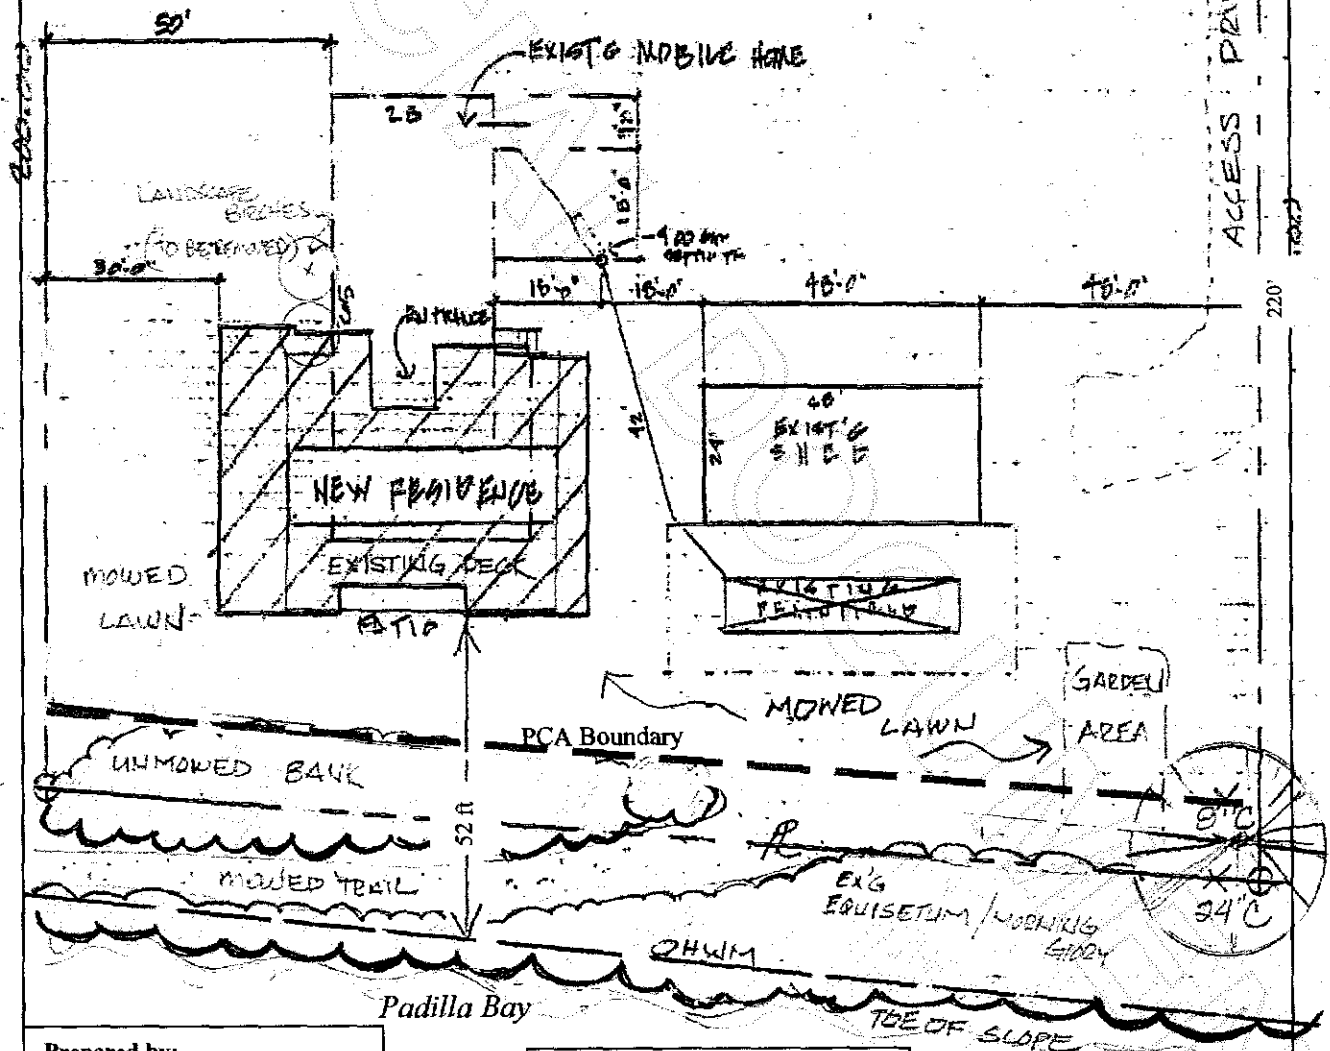 50'
EXIST'G MOBILE HOME
28
ACCESS
LANDSCAPE
BIRCHES
(TO BE REMOVED)
18'-0"
30'-0"
18'-0"
18'-0"
48'-0"
48'-0"
220'
ENTRANCE
42'
48'
EXIST'G
SHED
24'
NEW RESIDENCE
EXISTING DECK
MOWED
LAWN
PATIO
EXISTING
GARDEN
AREA
MOWED
LAWN
PCA Boundary
UNMOWED BANK
52 ft
9"C
MOWED TRAIL
EX'G
EQUISETUM/MORNING
GLORY
24"C
OHWM
Padilla Bay
TOE OF SLOPE
Prepared by: